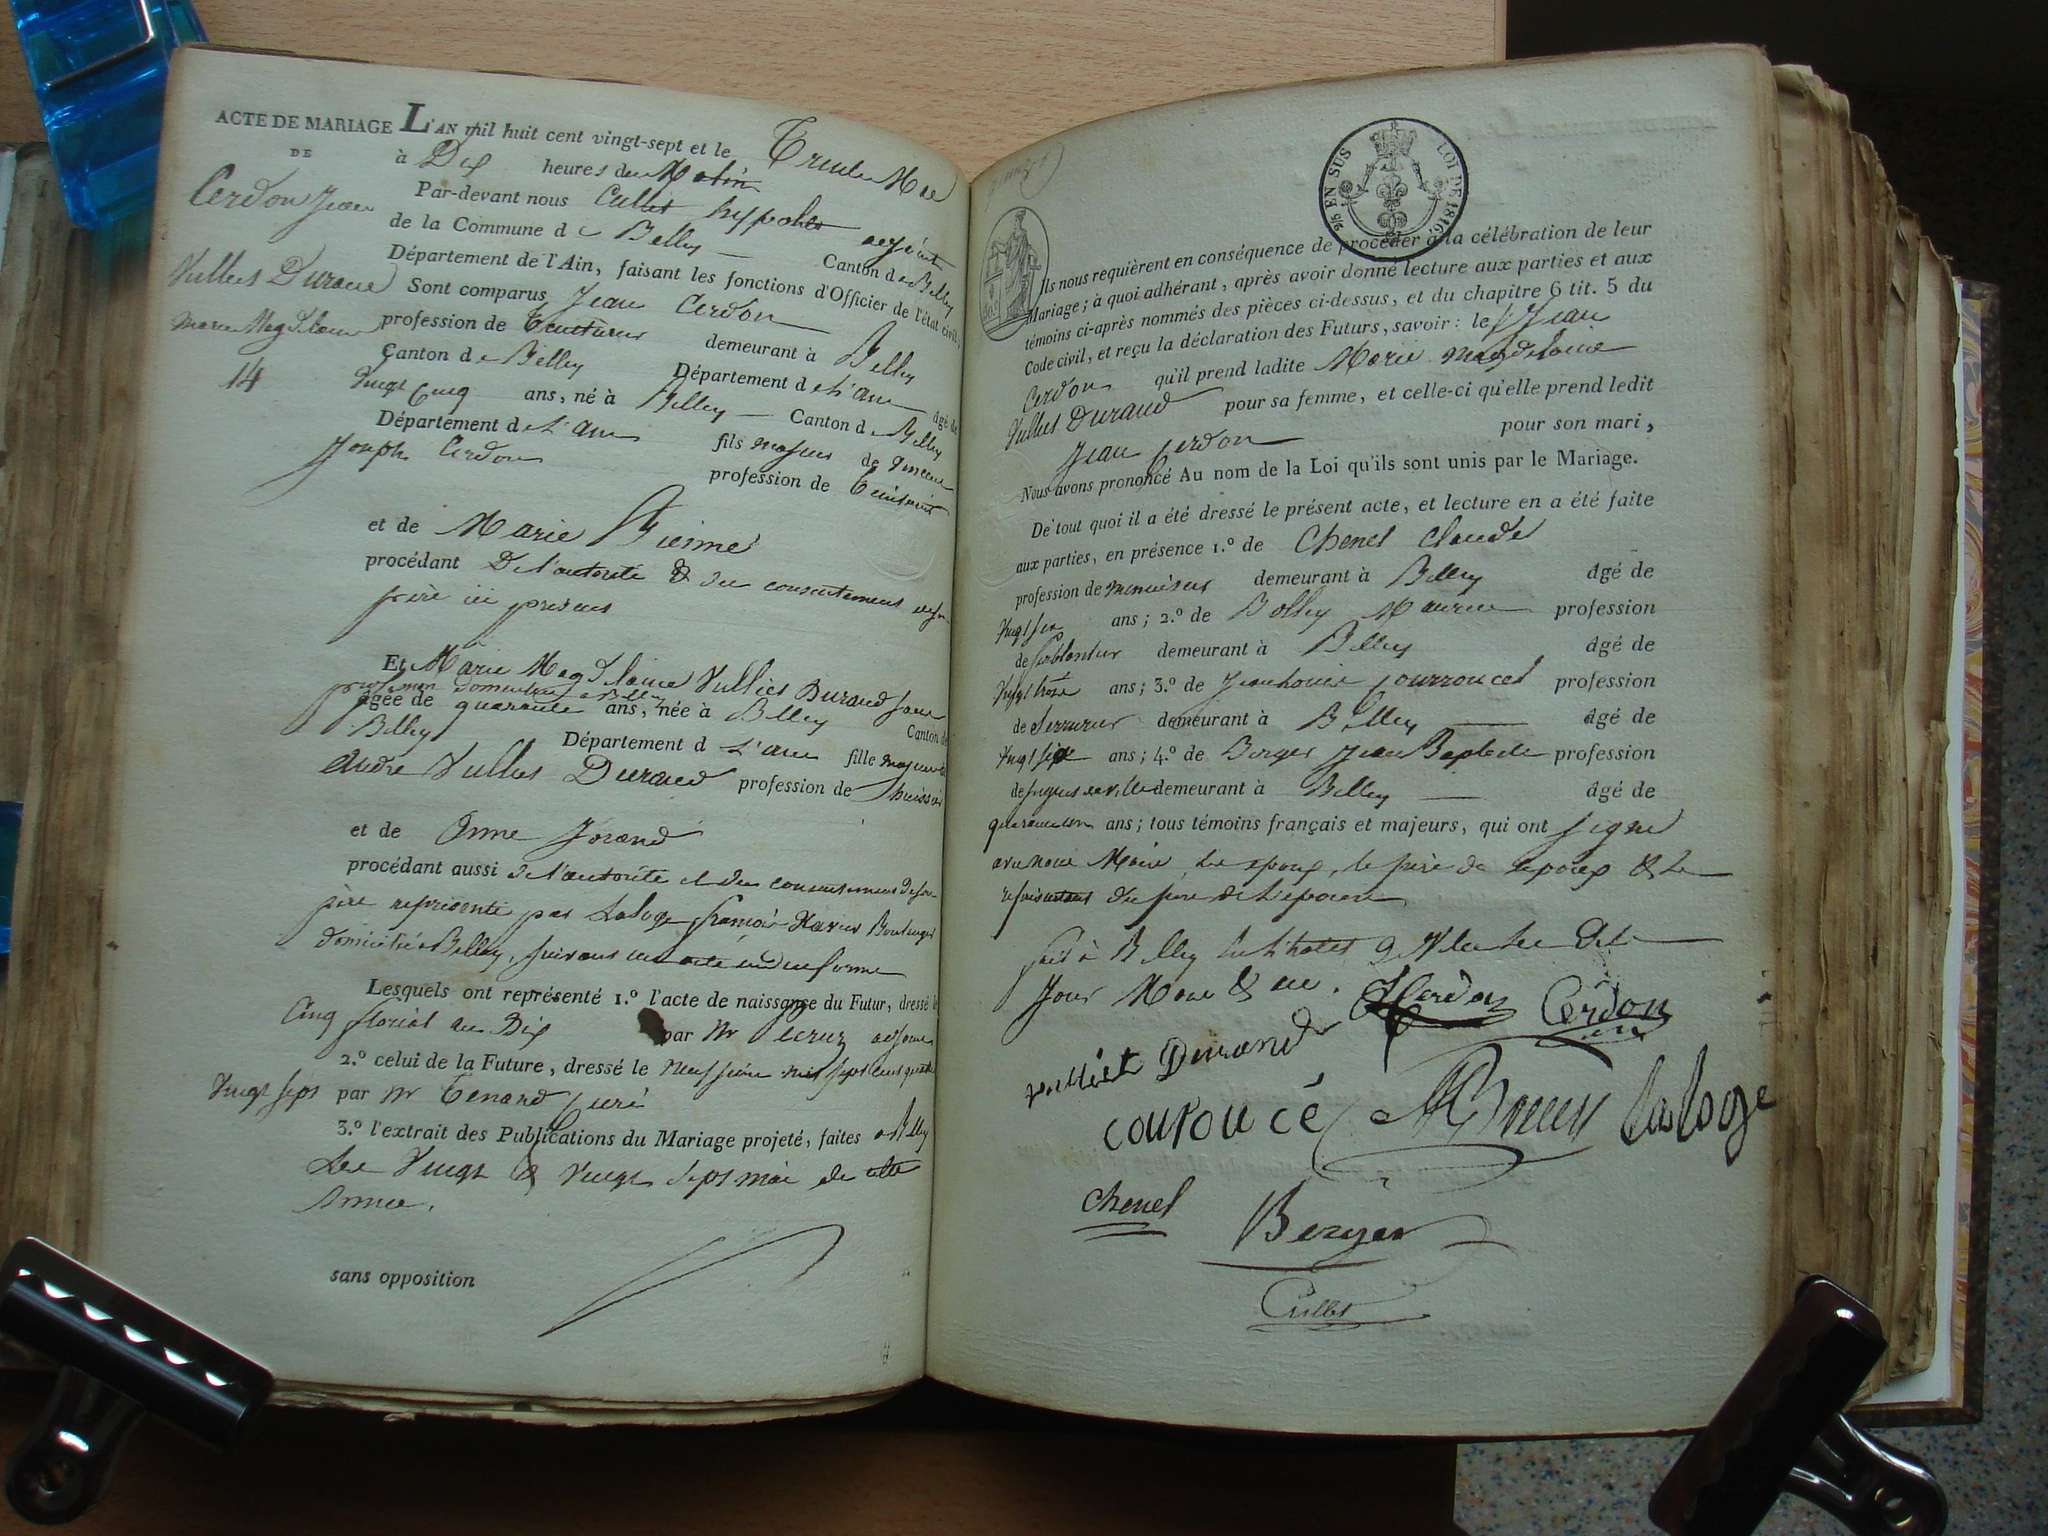 ACTE DE MARIAGE L'AN mil huit cent vingt-sept et le Trente Mai
DE à Dix heures du Matin
Cerdon Jean Par-devant nous Cullet hypolite adjoint
de la Commune de Belley Canton de Belley
Département de l'Ain, faisant les fonctions d'Officier de l'état civil,
Vulliet Durand Sont comparus Jean Cerdon
marie Magdelaine profession de demeurant à Belley
Canton de Belley Département de L'ain âgé de
14 vingt Cinq ans, né à Belley Canton de Belley
Département de L'ain fils majeur de Vincent
Joseph Cerdon profession de
et de Marie
procédant De l'autorité & du consentement de son
père ici présent
Et Marie Magdelaine Vulliet Durand sans
profession domiciliée à Belley
âgée de quarante ans, née à Belley Canton de
Belley Département d L'ain fille majeure de
André Vulliet Durand profession de huissier
et de Anne Jorand
procédant aussi de l'autorité et du consentement de son
père représenté par Laloge francois Xavier Boulanger
domicilié à Belley, suivant un acte en due forme
Lesquels ont représenté 1.º l'acte de naissance du Futur, dressé le
Cinq floréal an Dix par Mr adjoint
2.º celui de la Future, dressé le neuf juin mil sept cent quatre
Vingt sept par Mr Tenand Curé
3.º l'extrait des Publications du Mariage projeté, faites à Belley
Les Vingt & Vingt sept mai de cette
Année.
sans opposition
2/5 EN SUS LOI DE 1816.
Ils nous requièrent en conséquence de procéder à la célébration de leur
Mariage; à quoi adhérant, après avoir donné lecture aux parties et aux
témoins ci-après nommés des pièces ci-dessus, et du chapitre 6 tit. 5 du
Code civil, et reçu la déclaration des Futurs, savoir: le Jean
Cerdon qu'il prend ladite Marie Magdelaine
Vulliet Durand pour sa femme, et celle-ci qu'elle prend ledit
Jean Cerdon pour son mari,
Nous avons prononcé Au nom de la Loi qu'ils sont unis par le Mariage.
De tout quoi il a été dressé le présent acte, et lecture en a été faite
aux parties, en présence 1.º de Chenel Claude
profession de menuisier demeurant à Belley âgé de
Vingt six ans; 2.º de Bolley Maurice profession
de ferblantier demeurant à Belley âgé de
Vingt trois ans; 3.º de Jean Louis Courroucet profession
de Serrurier demeurant à Belley âgé de
Vingt six ans; 4.º de Berger Jean Baptiste profession
de sergent de ville demeurant à Belley âgé de
quarante un ans; tous témoins français et majeurs, qui ont signé
avec nous Maire, Les epoux, le père de l'epoux & Le
représentant du père de L'epouse
fait à Belley en L'hotel de Ville Les dits
Jour Mois & an. JCerdon Cerdon
vulliet Durand
couroucé Laloge
Chenel Berger
Cullet